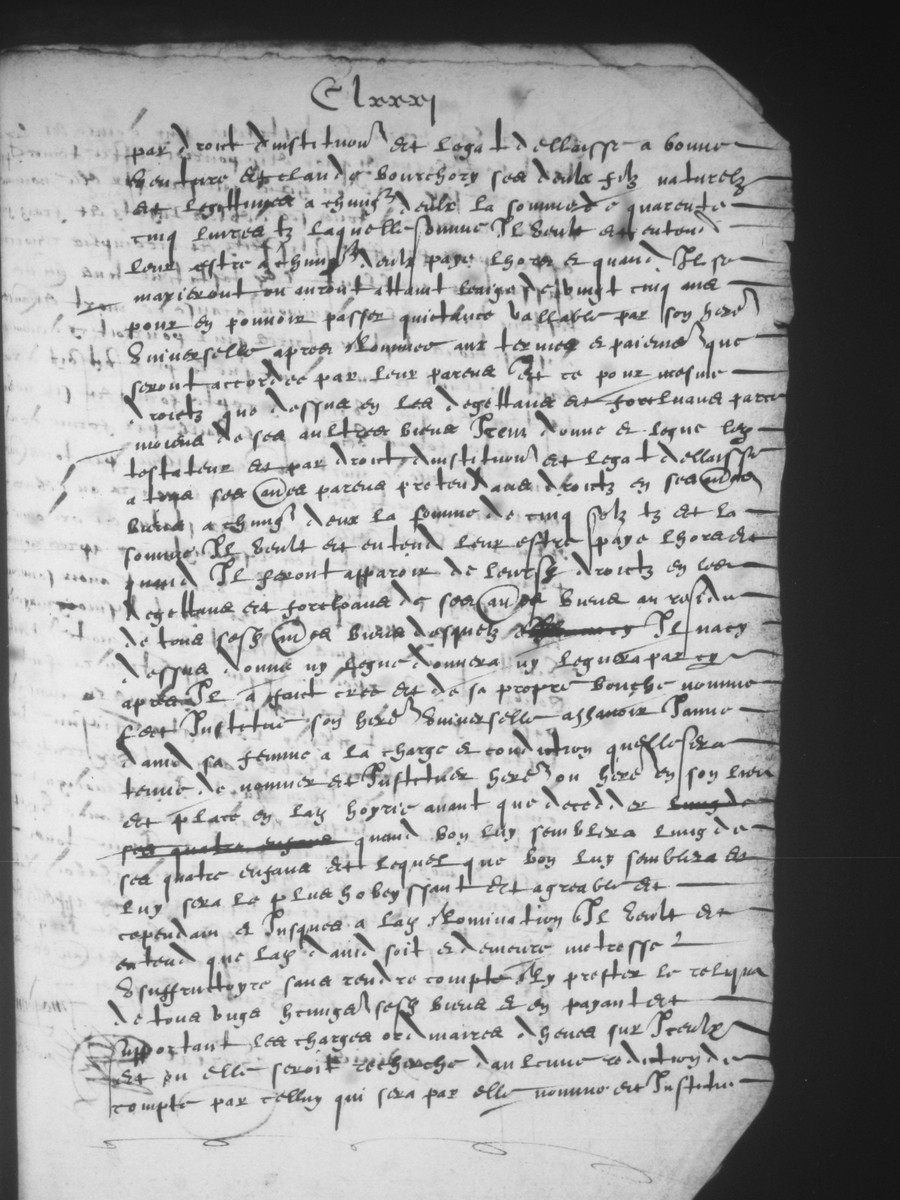 Clxxxj
par droict dinstitution et legat dellaisse a bonne
bventure et claude bourchory ses deulx filz naturelz
et legittimes a chung deulx la somme de quarente
cinq livres tz laquelle somme Il veult et entend
leur estre a chung deulx paye lhors et quand Il se
marieront ou auront attaint leaige de vingt cinq ans
pour en pouvoir passer quictance vallable par son here
universelle apres nommee aux termes et paiemens que
seront accordes par leur parens et ce pour mesme
droictz que dessus en les degettans et forcluans par ce
moiens de ses aultres biens Item donne et legue led
testateur et par droict dinstitution et legat dellaisse
a tous ses aultres parens pretendans droictz en ses aultres
biens a chung deux la somme de cinq solz tz et la
somme Il veult et entend leur estre paye lhors et
quand Il feront apparoir de leursd droictz en les
degettans et forcloans de ses aultres biens au residu
de tous sesd aultres biens desquelz Il nacy
dessus donne ny legue donnera ny leguera par cy
apres Il a faict cree et de sa propre bouche nomme
et Institue son here universelle assavoir Janne
david sa femme a la charge et condiction quelle sera
tenue de nommer et Instituer here ou here en son lieu
et place en lad hoyrie avant que decedder lung de
ses quatre enfans quand bon luy semblera lung de
ses quatre enfans et lequel que bon luy semblera et
luy sera le plus hobeyssant et agreable et
cependant et Jusques a lad nomination Il veult et
entend que lad david soit et demeure metresse
usuffruttoyre sans rendre compte ny prester le reliqua
de tous ungs chungs sesd biens et en payant et
supportant les charges ordinaires dheues sur Iceulx
et ou elle seroit recherche daulcune reddiction de
compte par celluy qui sera par elle nomme et Institue